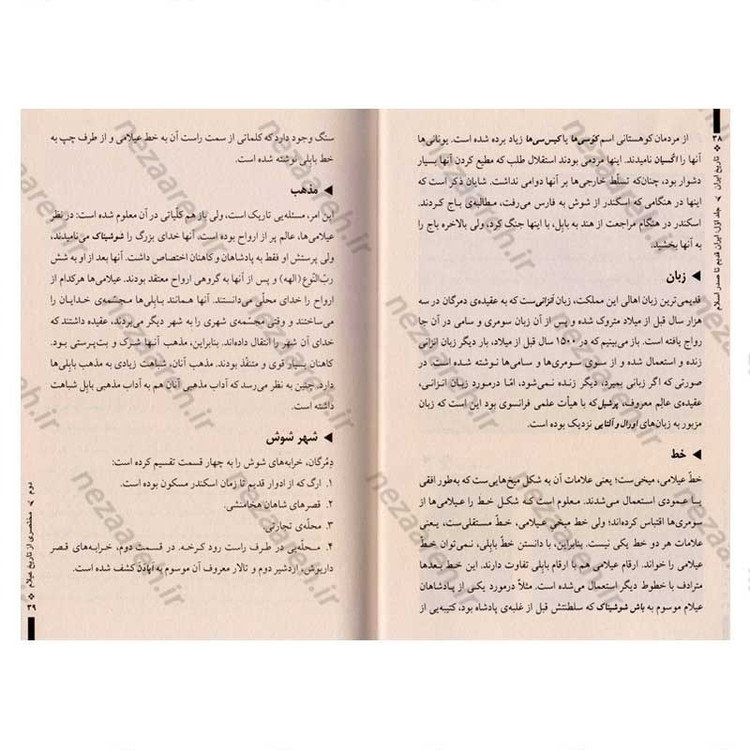 ۳۸ ❖ تاریخ ایران ◄ جلد اوّل: ایران قدیم تا صدر اسلام
از مردمان کوهستانی اسم کوسی‌ها یا کیس‌سی‌ها زیاد برده شده است. یونانی‌ها
آنها را اکسیان نامیدند. اینها مردمی بودند استقلال طلب که مطیع کردن آنها بسیار
دشوار بود، چنان‌که تسلّط خارجی‌ها بر آنها دوامی نداشت. شایان ذکر است که
اینها در هنگامی که اسکندر از شوش به فارس می‌رفت، مطالبه‌ی باج کردند.
اسکندر در هنگام مراجعت از هند به بابِل، با اینها جنگ کرد، ولی بالاخره باج را
به آنها بخشید.
◄ زبان
قدیمی‌ترین زبان اهالی این مملکت، زبان آنزانی‌ست که به عقیده‌ی دمرگان در سه
هزار سال قبل از میلاد متروک شده و پس از آن زبان سومری و سامی در آن جا
رواج یافته است. باز می‌بینیم که در ۱۵۰۰ سال قبل از میلاد، بار دیگر زبان انزانی
زنده و استعمال شده و از سوی سومری‌ها و سامی‌ها نوشته شده است. در
صورتی که اگر زبانی بمیرد، دیگر زنده نمی‌شود، امّا درمورد زبان انزانی،
عقیده‌ی عالِم معروف، پرشیل که با هیأت علمی فرانسوی بود این است که زبان
مزبور به زبان‌های اورال و آلتایی نزدیک بوده است.
◄ خط
خطّ عیلامی، میخی‌ست؛ یعنی علامات آن به شکل میخ‌هایی‌ست که به‌طور افقی
یا عمودی استعمال می‌شدند. معلوم است که شکل خط را عیلامی‌ها از
سومری‌ها اقتباس کرده‌اند؛ ولی خطّ میخی عیلامی، خطّ مستقلی‌ست، یعنی
علامات هر دو خط یکی نیست. بنابراین، با دانستن خطّ بابِلی، نمی‌توان خطّ
عیلامی را خواند. ارقام عیلامی هم با ارقام بابِلی تفاوت دارند. این خط بعدها
مترادف با خطوط دیگر استعمال می‌شده است. مثلاً درمورد یکی از پادشاهان
عیلام موسوم به باش شوشیناک که سلطنتش قبل از غلبه‌ی پادشاه بود، کتیبه‌یی از
سنگ وجود دارد که کلماتی از سمت راست آن به خط عیلامی و از طرف چپ به
خط بابِلی نوشته شده است.
◄ مذهب
این امر، مسئله‌یی تاریک است، ولی باز هم کلّیاتی در آن معلوم شده است: در نظر
عیلامی‌ها، عالم پر از ارواح بوده است، آنها خدای بزرگ را شوشیناک می‌نامیدند،
ولی پرستش او فقط به پادشاهان و کاهنان اختصاص داشت. آنها بعد از او به شش
ربّ‌النّوع (الهه) و پس از آنها به گروهی ارواح معتقد بودند. عیلامی‌ها هرکدام از
ارواح را خدای محلّی می‌دانستند. آنها همانند بابِلی‌ها مجسّمه‌ی خدایان را
می‌ساختند و وقتی مجسّمه‌ی شهری را به شهر دیگر می‌بردند، عقیده داشتند که
خدای آن شهر را انتقال داده‌اند. بنابراین، مذهب آنها شرک و بت‌پرستی بود.
کاهنان بسیار قوی و متنفّذ بودند. مذهب آنان، شباهت زیادی به مذهب بابِلی‌ها
دارد. چنین به نظر می‌رسد که آداب مذهبی آنان هم به آداب مذهبی بابِل شباهت
داشته است.
◄ شهر شوش
دِمُرگان، خرابه‌های شوش را به چهار قسمت تقسیم کرده است:
۱. ارگ که از ادوار قدیم تا زمان اسکندر مسکون بوده است.
۲. قصرهای شاهان هخامنشی.
۳. محلّه‌ی تجارتی.
۴. محلّه‌یی در طرف راست رود کرخه. در قسمت دوم، خرابه‌های قصر
داریوش، اردشیر دوم و تالار معروف آن موسوم به آپادَن کشف شده است.
دوم ◄ مختصری از تاریخ عیلام ❖ ۳۹
nezaareh.ir